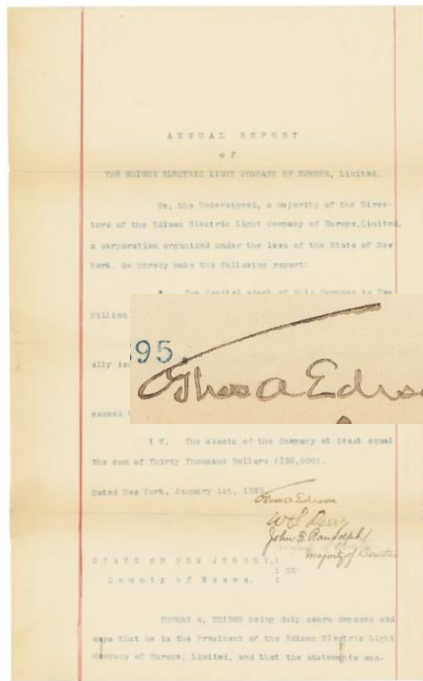 ANNUAL REPORT
of
THE EDISON ELECTRIC LIGHT COMPANY OF EUROPE, Limited.
We, the Undersigned, a majority of the Direc-
tors of the Edison Electric Light Company of Europe,Limited,
a corporation organized under the laws of the State of New
York, do hereby make the following report:
The Capital stock of this Company is
Million
895.
Thos A Edison
ally
I V. The assets of the Company at least equal
the sum of Thirty Thousand Dollars ($30,000).
Dated New York, January 1st, 1895.
Thos A Edison
John F. Randolph
Majority of
STATE OF NEW JERSEY,:
: SS
County of Essex. :
THOMAS A. EDISON being duly sworn deposes and
says that he is the President of the Edison Electric Light
Company of Europe, Limited, and that the statements con-